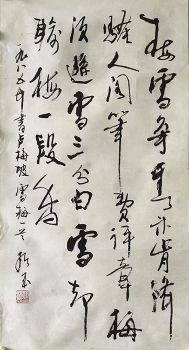 梅雪争春未肯降
骚人阁笔费评章梅
须逊雪三分白雪却
输梅一段香
一九八五年书卢梅坡雪梅一首